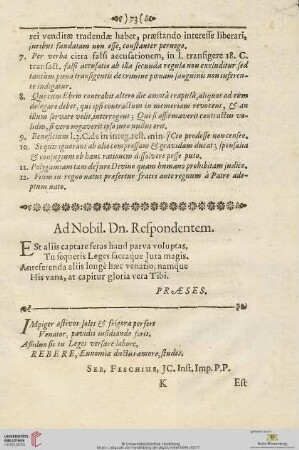 (73)
rei venditæ tradendæ habet, præstando interesse liberari,
juribus fundatam non esse, constanter pernego.
7. Per verba citra falsi accusationem, in l. transigere 18. C.
transact. falsi accusatio ab illa secunda regula non excluditur sed
tantùm pœna transigentis de crimine pœnam sanguinis non inferen-
te indigitatur.
8. Qui cum Ebrio contrahit altero die amotâ crapulâ, aliquot ad eum
delegare debet, qui ipsi contractum in memoriam revocent, & an
illum servare velit, interrogent; Qui si affirmaverit contractus va-
lidus, si verò negaverit ipso jure nullus erit.
9. Beneficium l. 2. C. de in integ. rest. min. JCto prodesse non censeo.
10. Si quis ignorans ab alio compressam & gravidam ducat, sponsalia
& conjugium ob hanc rationem dissolvere posse puto.
11. Polygamiam tam de Jure Divino quàm humano prohibitam judico.
12. Filium in regno natus præfertur fratri ante regnum à Patre ade-
ptum nato.
Ad Nobil. Dn. Respondentem.
ESt aliis captare feras haud parva voluptas,
Tu sequeris Leges sacraque Jura magis.
Anteferenda aliis longè hæc venatio: namque
His vana, at capitur gloria vera Tibi.
PRÆSES.
IMpiger æstivos soles & frigora perfert
Venator, pavidis insidiando feris.
Assiduo sis tu Leges versare labore,
REBERE, Eunomiæ doctus amore, studes.
SEB. FESCHIUS, JC. Inst. Imp. P.P.
K Est
UNIVERSITÄTS-
BIBLIOTHEK
HEIDELBERG
© Universitätsbibliothek Heidelberg
Baden-Württemberg